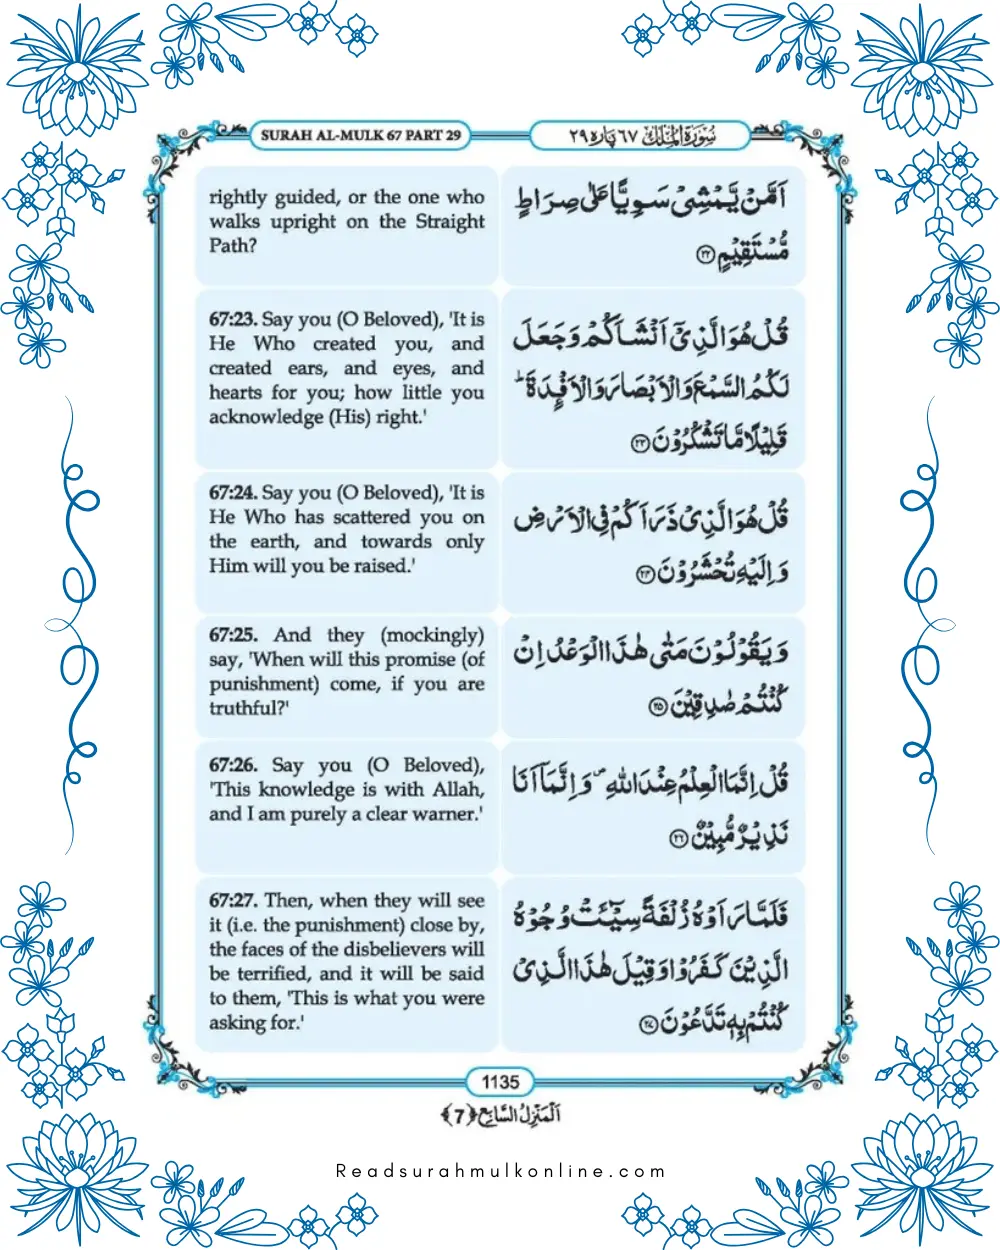 SURAH AL-MULK 67 PART 29
سُوْرَةُ الْمُلْك ٦٧ پارہ ٢٩
rightly guided, or the one who
walks upright on the Straight
Path?
اَمَّنْ يَّمْشِيْ سَوِيًّا عَلٰى صِرَاطٍ
مُّسْتَقِيْمٍ ۝٢٢
67:23. Say you (O Beloved), 'It is
He Who created you, and
created ears, and eyes, and
hearts for you; how little you
acknowledge (His) right.'
قُلْ هُوَ الَّذِيْۤ اَنْشَاَكُمْ وَ جَعَلَ
لَكُمُ السَّمْعَ وَ الْاَبْصَارَ وَ الْاَفْـِٕدَةَ ؕ
قَلِيْلًا مَّا تَشْكُرُوْنَ ۝٢٣
67:24. Say you (O Beloved), 'It is
He Who has scattered you on
the earth, and towards only
Him will you be raised.'
قُلْ هُوَ الَّذِيْ ذَرَاَكُمْ فِي الْاَرْضِ
وَ اِلَيْهِ تُحْشَرُوْنَ ۝٢٤
67:25. And they (mockingly)
say, 'When will this promise (of
punishment) come, if you are
truthful?'
وَ يَقُوْلُوْنَ مَتٰى هٰذَا الْوَعْدُ اِنْ
كُنْتُمْ صٰدِقِيْنَ ۝٢٥
67:26. Say you (O Beloved),
'This knowledge is with Allah,
and I am purely a clear warner.'
قُلْ اِنَّمَا الْعِلْمُ عِنْدَ اللّٰهِ ۪ وَ اِنَّمَاۤ اَنَا
نَذِيْرٌ مُّبِيْنٌ ۝٢٦
67:27. Then, when they will see
it (i.e. the punishment) close by,
the faces of the disbelievers will
be terrified, and it will be said
to them, 'This is what you were
asking for.'
فَلَمَّا رَاَوْهُ زُلْفَةً سِيْٓـَٔتْ وُجُوْهُ
الَّذِيْنَ كَفَرُوْا وَ قِيْلَ هٰذَا الَّذِيْ
كُنْتُمْ بِهٖ تَدَّعُوْنَ ۝٢٧
1135
اَلْمَنْزِلُ السَّابِع ﴿7﴾
Readsurahmulkonline.com